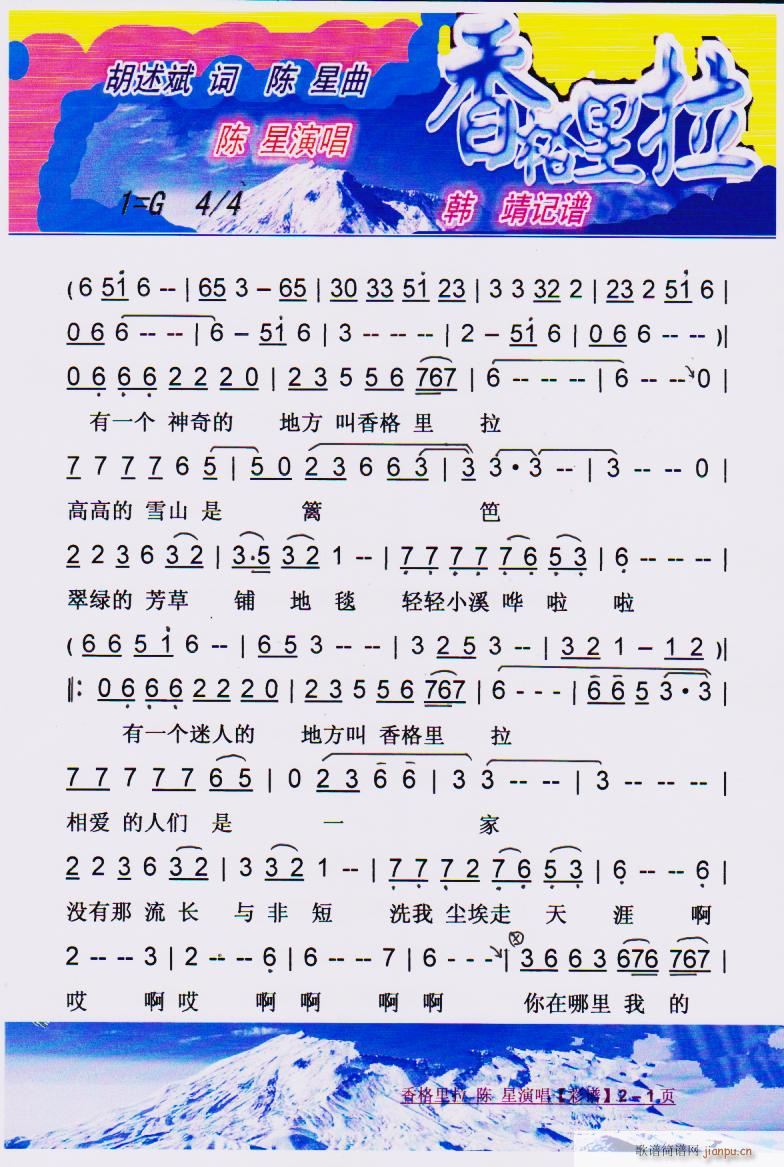 香格里拉
胡述斌 词 陈 星曲
陈 星演唱
1=G 4/4
韩 靖记谱
( 6 51 6 -- | 65 3 – 65 | 30 33 51 23 | 3 3 32 2 | 23 2 51 6 |
0 6 6 -- -- | 6 – 51 6 | 3 -- -- -- | 2 – 51 6 | 0 6 6 -- -- )|
0 6 6 6 2 2 2 0 | 2 3 5 5 6 767 | 6 -- -- -- | 6 -- -- 0 |
有一个 神奇的 地方 叫香格 里 拉
7 7 7 7 6 5 | 5 0 2 3 6 6 3 | 3 3 · 3 -- | 3 -- -- 0
高高的 雪山 是 篱 笆
2 2 3 6 3 2 | 3·5 3 2 1 -- | 7 7 7 7 7 6 5 3 | 6 -- -- --
翠绿的 芳草 铺 地 毯 轻轻小溪 哗 啦 啦
( 6 6 5 1 6 -- | 6 5 3 -- -- | 3 2 5 3 -- | 3 2 1 – 1 2 )|
‖: 0 6 6 6 2 2 2 0 | 2 3 5 5 6 767 | 6 - - - | 6 6 5 3 · 3 |
有一个迷人的 地方叫 香格里 拉
7 7 7 7 7 6 5 | 0 2 3 6 6 | 3 3 -- -- | 3 -- -- -- |
相爱 的人们 是 一 家
2 2 3 6 3 2 | 3 3 2 1 -- | 7 7 7 2 7 6 5 3 | 6 -- -- 6
没有那 流 长 与 非 短 洗我 尘埃走 天 涯 啊
2 -- -- 3 | 2 -- -- 6 | 6 -- -- 7 | 6 - - - | 3 6 6 3 676 767 |
哎 啊 哎 啊 啊 啊 啊 你在哪里 我 的
香格里拉 陈 星演唱【彩谱】2－1 页
歌谱简谱网 jianpu.cn